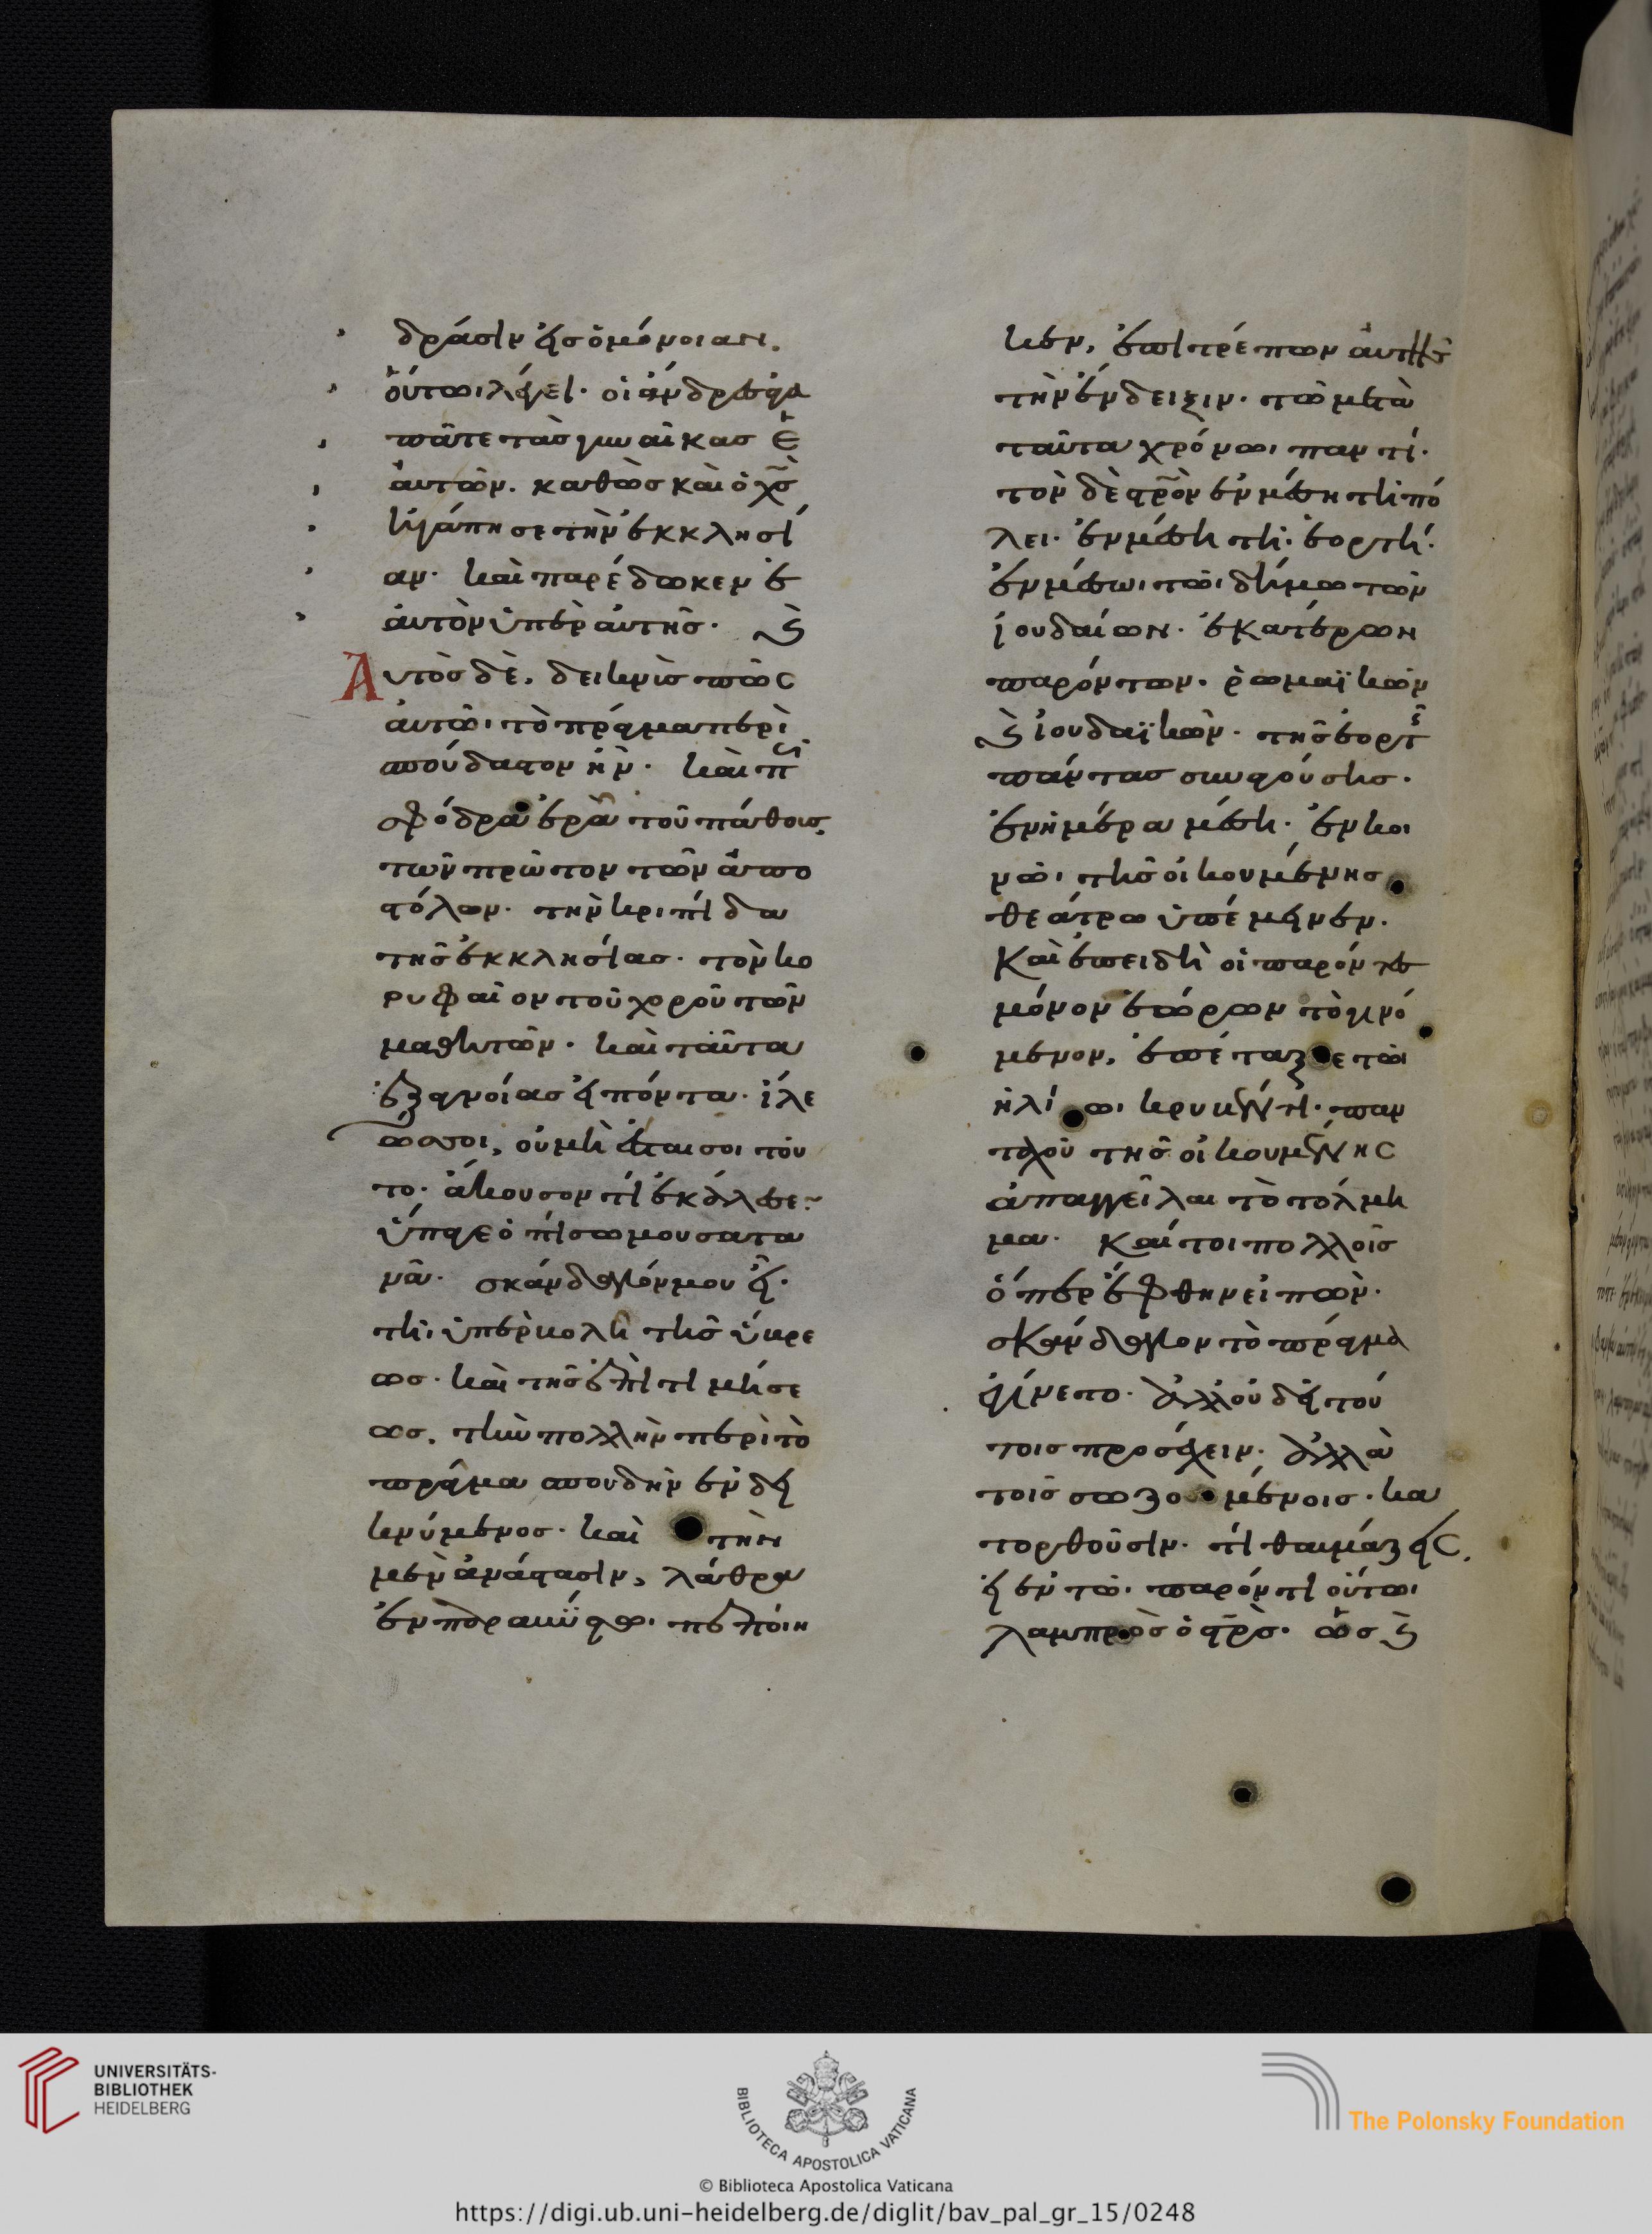 δράσιν εἰς ὁμόνοιαν.
ὅυτωι λέγει· οἱ ἄνδρες ἀγα
πᾶτε τὰς γυναῖκας ἑ
ἀυτῶν. καθὼς καὶ ὁ χς
ἠγάπησε τὴν ἐκκλησί
αν· καὶ παρέδωκεν ἑ
ἀυτὸν ὑπὲρ ἀυτῆς· καὶ
Αυτὸς δὲ, δεικνὺς πῶς
ἀυτῶι τὸ πράγμα περι
σπούδαστον ἦν· καὶ
σφόδρα ἐρᾶ τοῦ πάθους,
τῶν πρώτον τῶν ἀπο
στόλων· τὴν κρηπίδα
τῆς ἐκκλησίας· τὸν κο
ρυφαῖον τοῦ χοροῦ τῶν
μαθητῶν· καὶ ταῦτα
ἐξ ἀγνοίας εἰπόντα· ἵλε
ώς σοι, οὐ μὴ ἔσται σοι τοῦ
το· ἄκουσον τί ἐκάλεσε·
ὕπαγε ὀπίσω μου σατα
νᾶ· σκάνδαλόν μου εἶ·
τῆι ὑπερβολῆ τῆς ὕβρε
ως· καὶ τῆς ἐπιτιμήσε
ως. τὴν πολλὴν περὶ τὸ
πράγμα σπουδὴν ἐνδει
κνύμενος· καὶ τὴν
μὲν ἀνάστασιν, λάθρα
ἐν παραβύστωι πεποίη
κεν, ἐπιτρέπων ἀυτῆς
τὴν ἔνδειξιν· τῶ μετὰ
ταῦτα χρόνωι παντί·
τὸν δὲ στρὸν ἐν μέση τῆι πό
λει· ἐν μέση τῆι ἑορτῆ·
ἐν μέσωι τῶι δήμω τῶν
ἰουδαίων· ἑκατέρων
παρόντων· ῥωμαϊκῶν
καὶ ἰουδαϊκῶν· τῆς ἑορτῆς
πάντας συναγούσης·
ἐν ἡμέρα μέση· ἐν κοι
νῶι τῆς οἰκουμένης
θεάτρω ὑπέμεινεν.
Καὶ ἐπειδὴ οἱ παρόντες
μόνον ἑώρων τὸ γινό
μενον, ἐπέταξε τῶι
ἡλίωι κρυβέντι· παν
ταχοῦ τῆς οἰκουμένης
ἀπαγγεῖλαι τὸ τόλμη
μα· Καίτοι πολλοῖς
ὅπερ ἔφθην εἰπών·
σκάνδαλον τὸ πράγμα
ἐγίνετο· ἀλλ' οὐ δεῖ τού
τοις προσέχειν· ἀλλὰ
τοῖς σωζομένοις· κα
τορθοῦσιν· τί θαυμάζεις.
εἰ ἐν τῶι παρόντι οὕτωι
λαμπρὸς ὁ στρς· ὡς καὶ
UNIVERSITÄTS-
BIBLIOTHEK
HEIDELBERG
BIBLIOTECA APOSTOLICA VATICANA
The Polonsky Foundation
© Biblioteca Apostolica Vaticana
https://digi.ub.uni-heidelberg.de/diglit/bav_pal_gr_15/0248